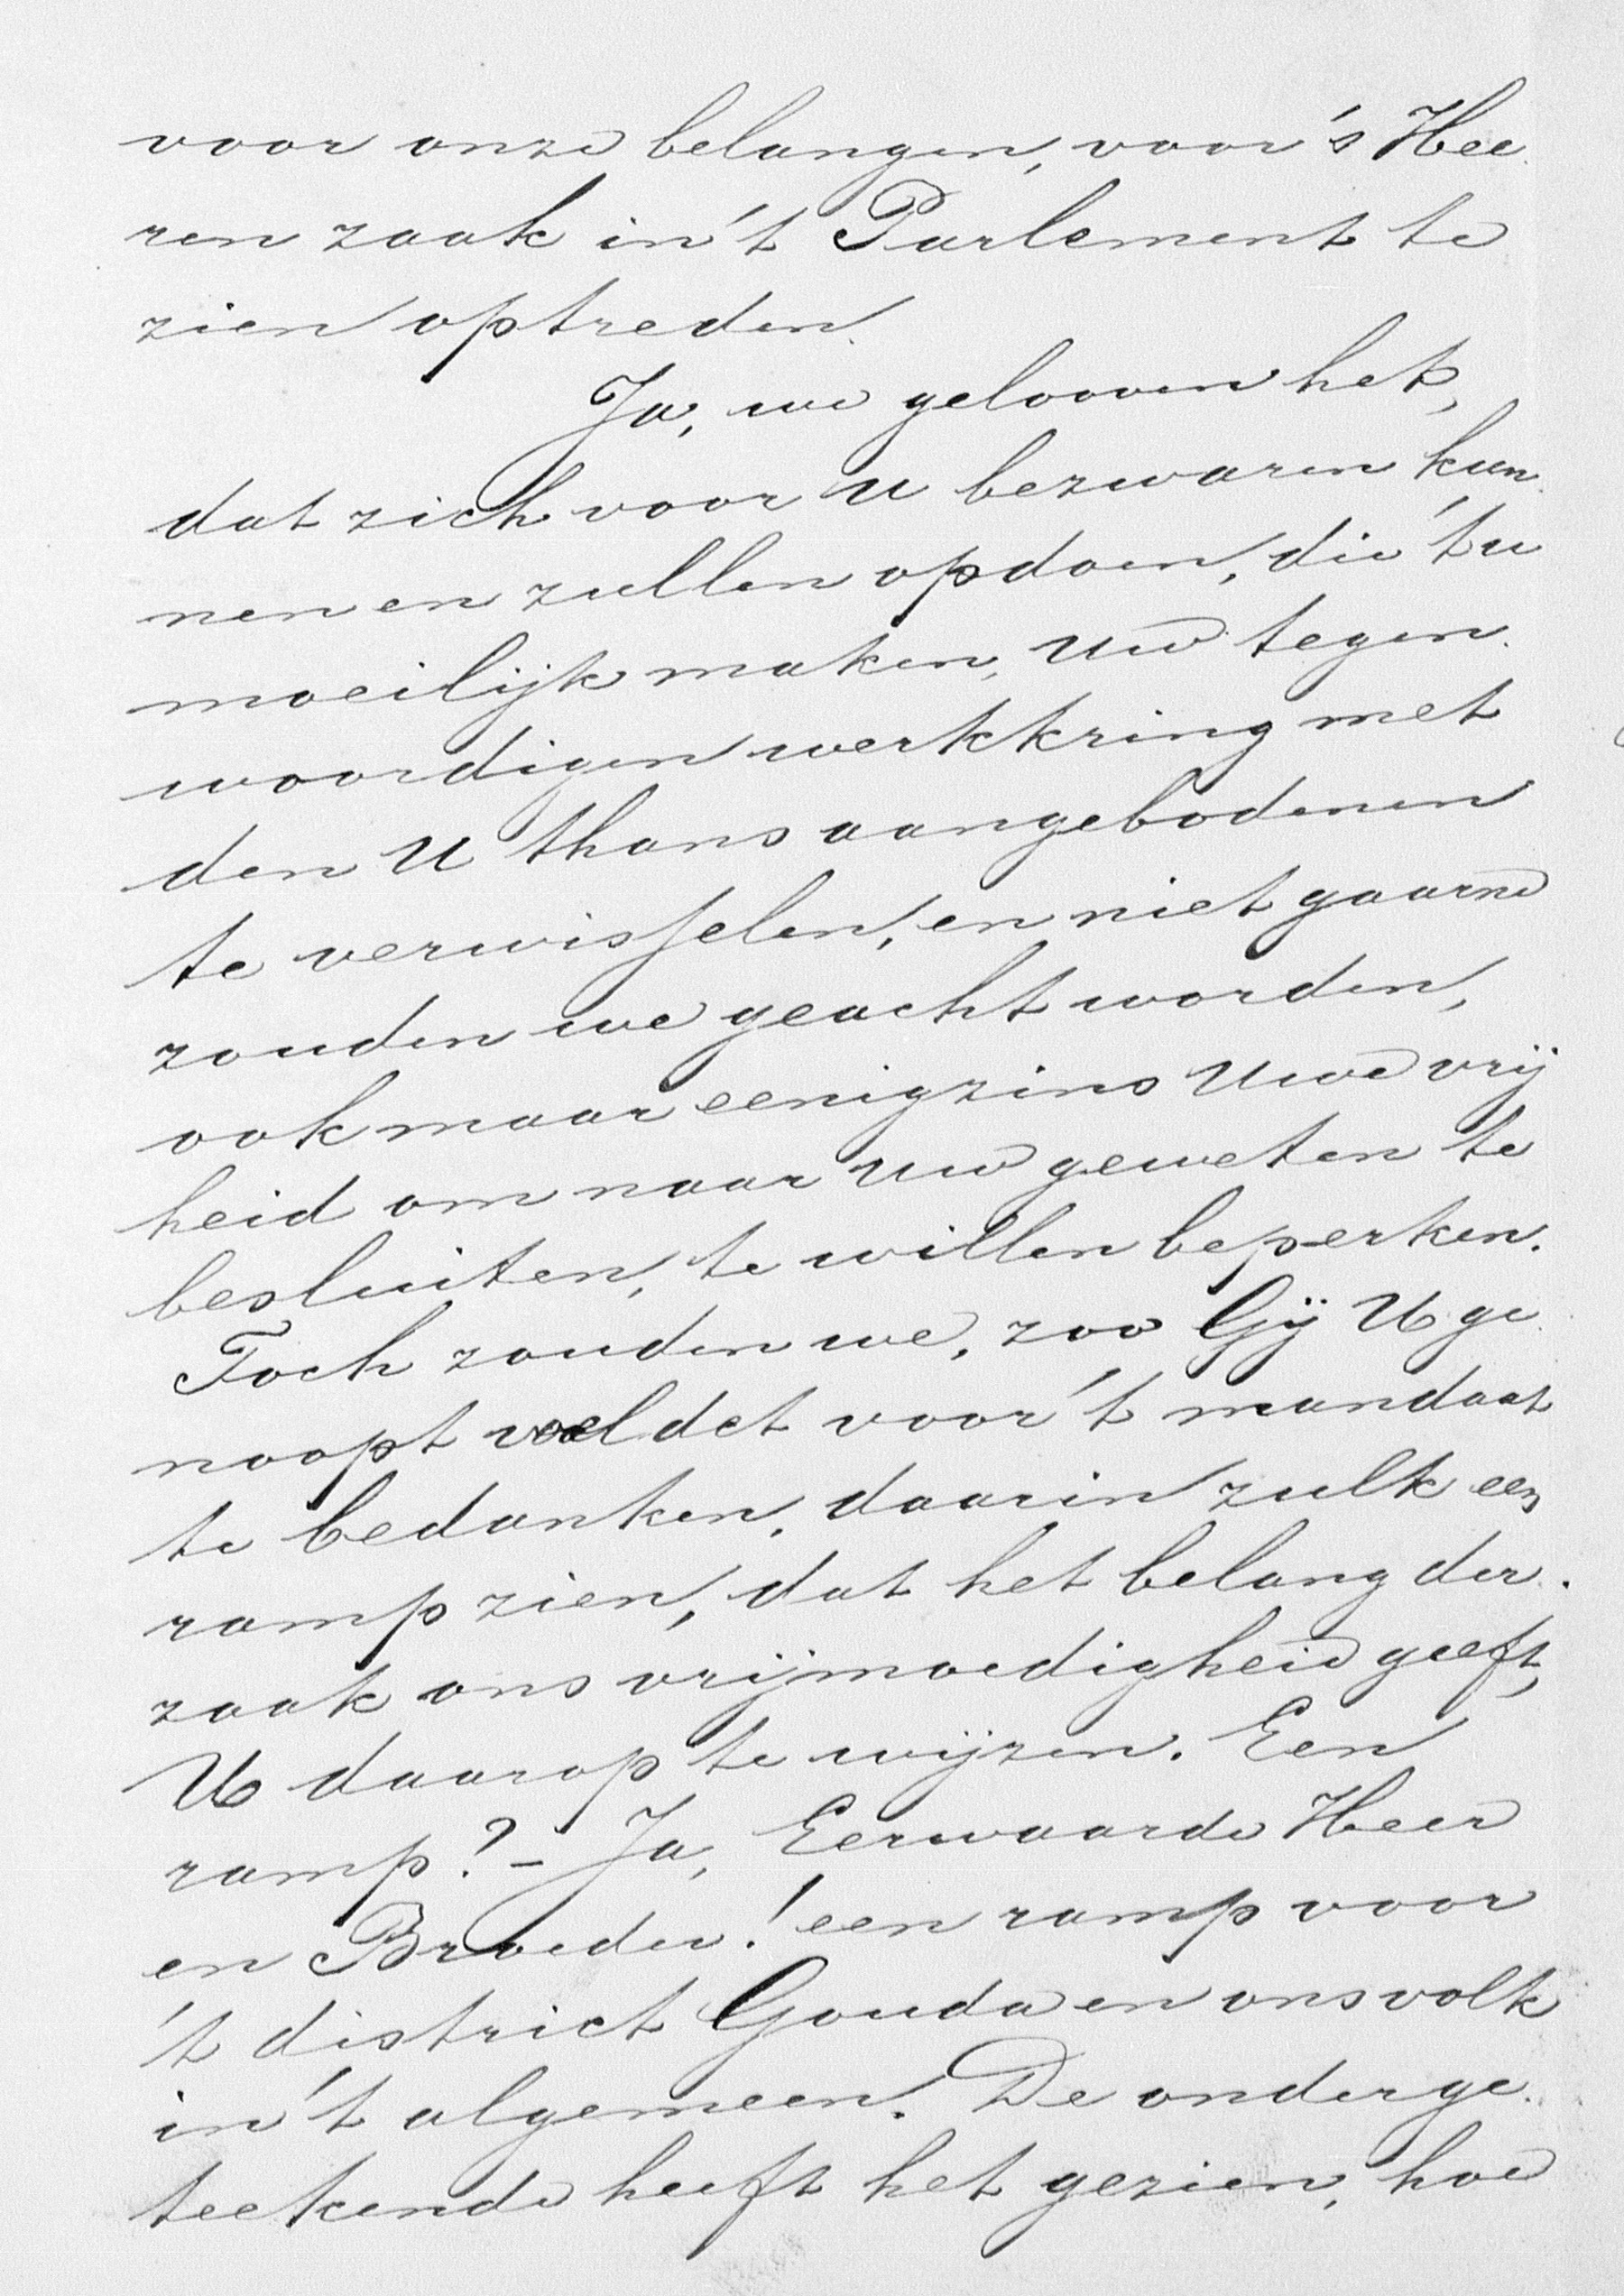 voor onze belangen, voor 's Hee-
ren zaak in 't Parlement te
zien optreden.
Ja, we gelooven het,
dat zich voor U bezwaren kun-
nen en zullen opdoen, die 't u
moeilijk maken, Uw tegen-
woordigen werkkring met
den U thans aangebodenen
te verwisselen, en niet gaarne
zouden we geacht worden,
ook maar eenigzins Uwe vrij
heid om naar Uw geweten te
besluiten, te willen beperken.
Toch zouden we, zoo Gij U ge-
noopt voeldet voor 't mandaat
te bedanken, daarin zulk een
ramp zien, dat het belang der
zaak ons vrijmoedigheid geeft,
U daarop te wijzen. Een
ramp? - Ja, Eerwaarde Heer
en Broeder! een ramp voor
't district Gouda en ons volk
in 't algemeen. De onderge-
teekende heeft het gezien, hoe